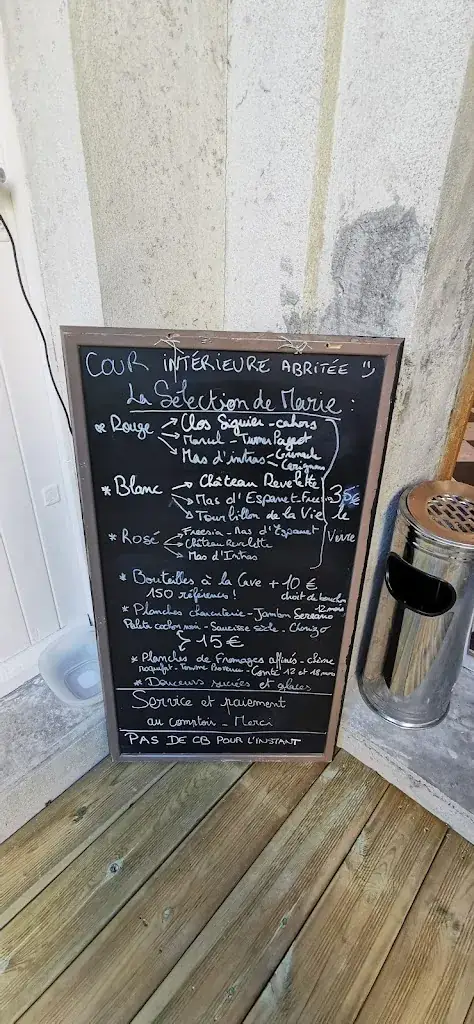 COUR INTÉRIEURE ABRITÉE :)
La Sélection de Marie :
* Rouge → Clos Siguier - cahors
→ Marcel - Turner Pageot
→ Mas d'intras - Grenache
Carignan
* Blanc → Château Revelette
→ Mas d'Espanet - Freesia
→ Tourbillon de la Vie
3,5€
le
Verre
* Rosé → Freesia - Mas d'Espanet
→ Château Revelette
→ Mas d'Intras
* Bouteilles à la Cave + 10 €
150 références ! droit de bouchon
* Planches charcuterie - Jambon Serrano
12 mois
Palette cochon noir - Saucisse sèche - Chorizo
> 15 €
* Planches de Fromages affinés - chèvre
roquefort - Tomme Provence - Comté 12 et 18 mois
* Douceurs sucrées et glaces
Service et paiement
au comptoir - Merci
PAS DE CB POUR L'INSTANT